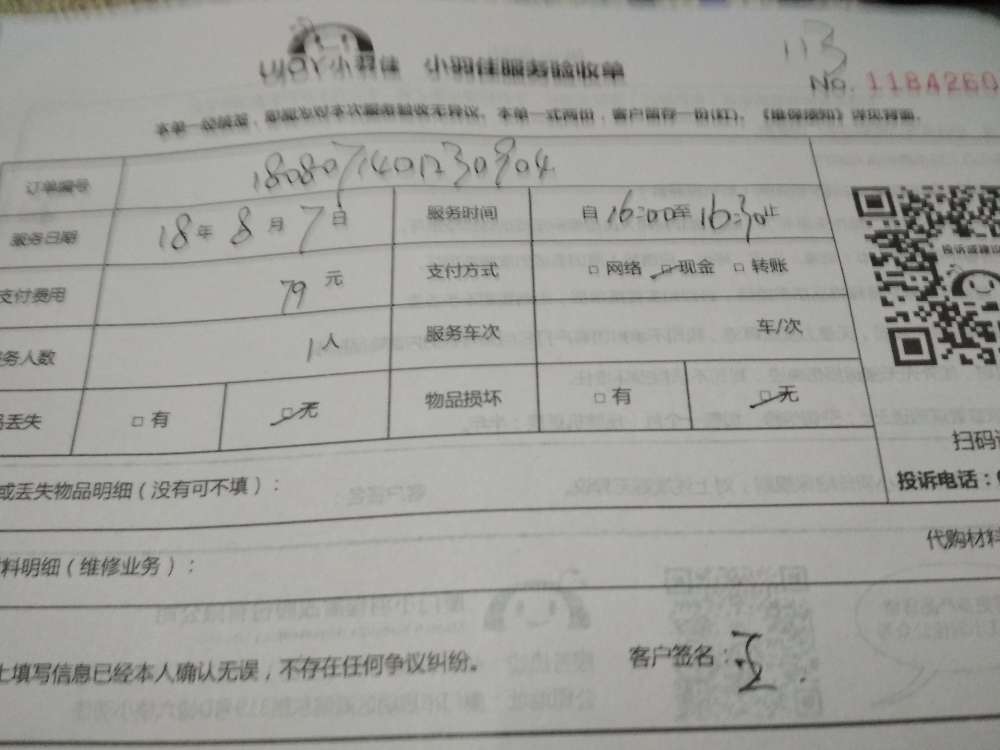 113
UJOY小羽佳 小羽佳服务验收单
No. 1184260
本单一式两份,客户留存一份(红),《维保须知》详见背面。
订单编号 1808071401230904
服务日期 18年8月7日 服务时间 自16:00至16:30止
支付费用 79元 支付方式 □网络 ☑现金 □转账
务人数 1人 服务车次 车/次
丢失 □有 ☑无 物品损坏 □有 ☑无
扫码
或丢失物品明细(没有可不填):
投诉电话:
代购材料
料明细(维修业务):
上填写信息已经本人确认无误,不存在任何争议纠纷。 客户签名: